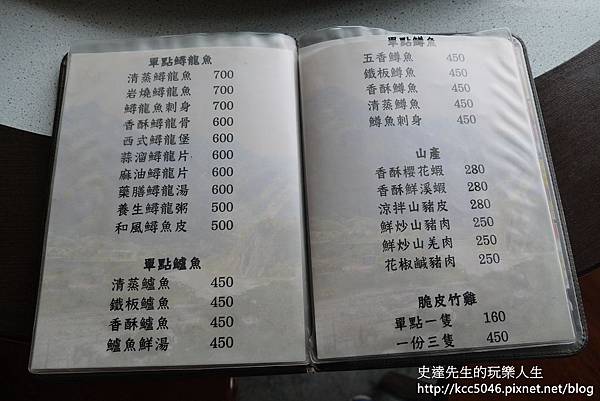 單點鱘龍魚
清蒸鱘龍魚 700
岩燒鱘龍魚 700
鱘龍魚刺身 700
香酥鱘龍骨 600
西式鱘龍堡 600
蒜溜鱘龍片 600
麻油鱘龍片 600
藥膳鱘龍湯 600
養生鱘龍粥 500
和風鱘魚皮 500
單點鱸魚
清蒸鱸魚 450
鐵板鱸魚 450
香酥鱸魚 450
鱸魚鮮湯 450
單點鱒魚
五香鱒魚 450
鐵板鱒魚 450
香酥鱒魚 450
清蒸鱒魚 450
鱒魚刺身 450
山產
香酥櫻花蝦 280
香酥鮮溪蝦 280
涼拌山豬皮 280
鮮炒山豬肉 250
鮮炒山羌肉 250
花椒鹹豬肉 250
脆皮竹雞
單點一隻 160
一份三隻 450
史達先生的玩樂人生
http://kcc5046.pixnet.net/blog